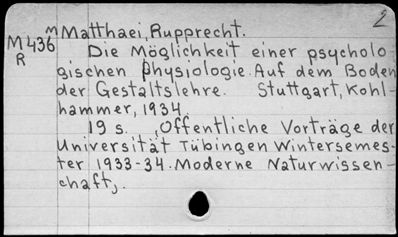 2
M Matthaei, Rupprecht.
M436
R
Die Möglichkeit einer psycholo
gischen Physiologie. Auf dem Boden
der Gestaltslehre. Stuttgart, Kohl-
hammer, 1934.
19 s. (Öffentliche Vorträge der
Universität Tübingen Wintersemes-
ter 1933-34. Moderne Naturwissen-
chaft,.